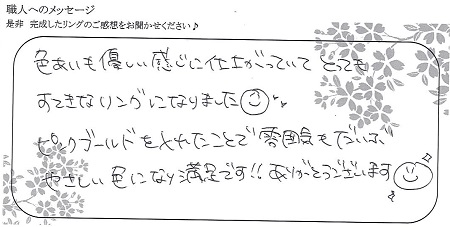 職人へのメッセージ
是非 完成したリングのご感想をお聞かせください♪
色あいも優しい感じに仕上がっていて とても
すてきなリングになりました
ピンクゴールドを入れたことで雰囲気もだいぶ
やさしい色になり満足です!! ありがとうございます